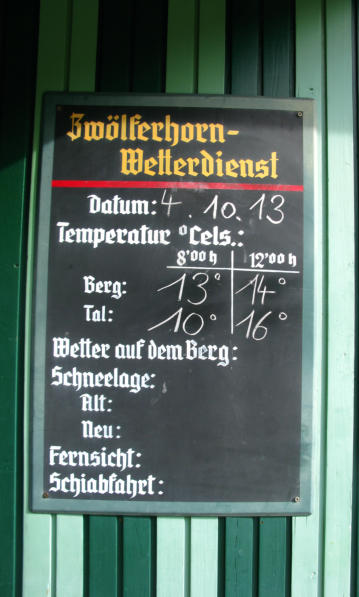 Zwölferhorn-
Wetterdienst
Datum: 4.10.13
Temperatur °Cels.:
8'00 h 12'00 h
Berg: 13° 14°
Tal: 10° 16°
Wetter auf dem Berg:
Schneelage:
Alt:
Neu:
Fernsicht:
Schiabfahrt: